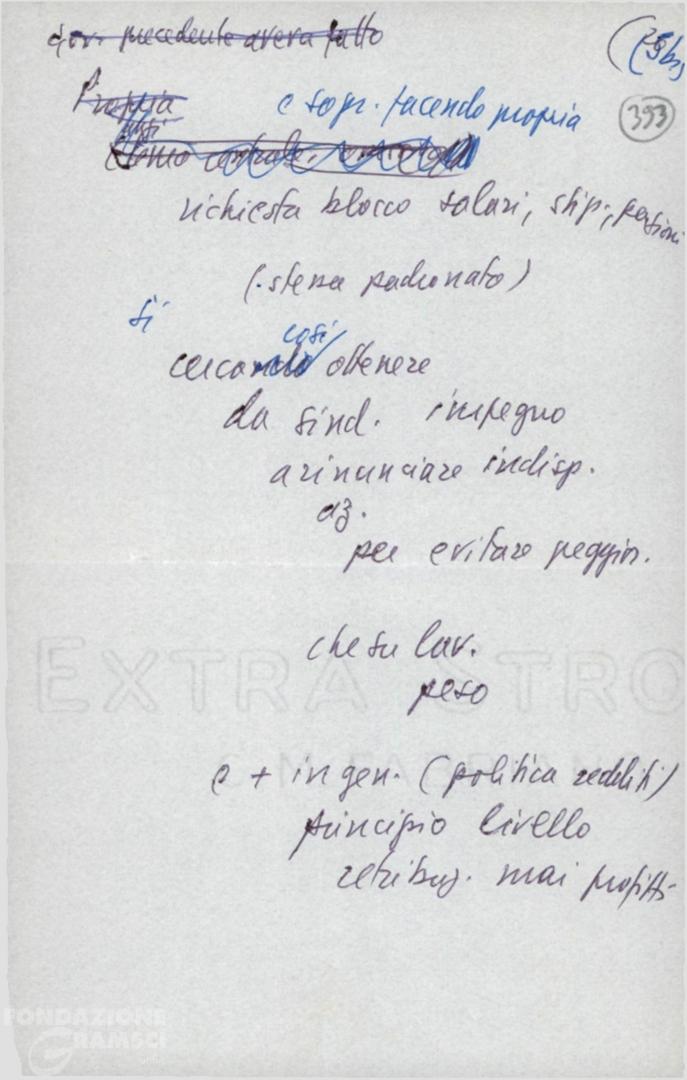 gov. precedente aveva fatto
(29 bis
Propria
e sopr. facendo propria
393
così
richiesta blocco salari, stip., pensioni
(stessa padronato)
si
così
cercando ottenere
da sind. impegno
a rinunciare indisp.
az.
per evitare peggior.
che su lav.
peso
e + in gen. (politica redditi)
principio livello
retribuz. mai profitti
EXTRA STRO
C.M. FABRIANO
FONDAZIONE
GRAMSCI